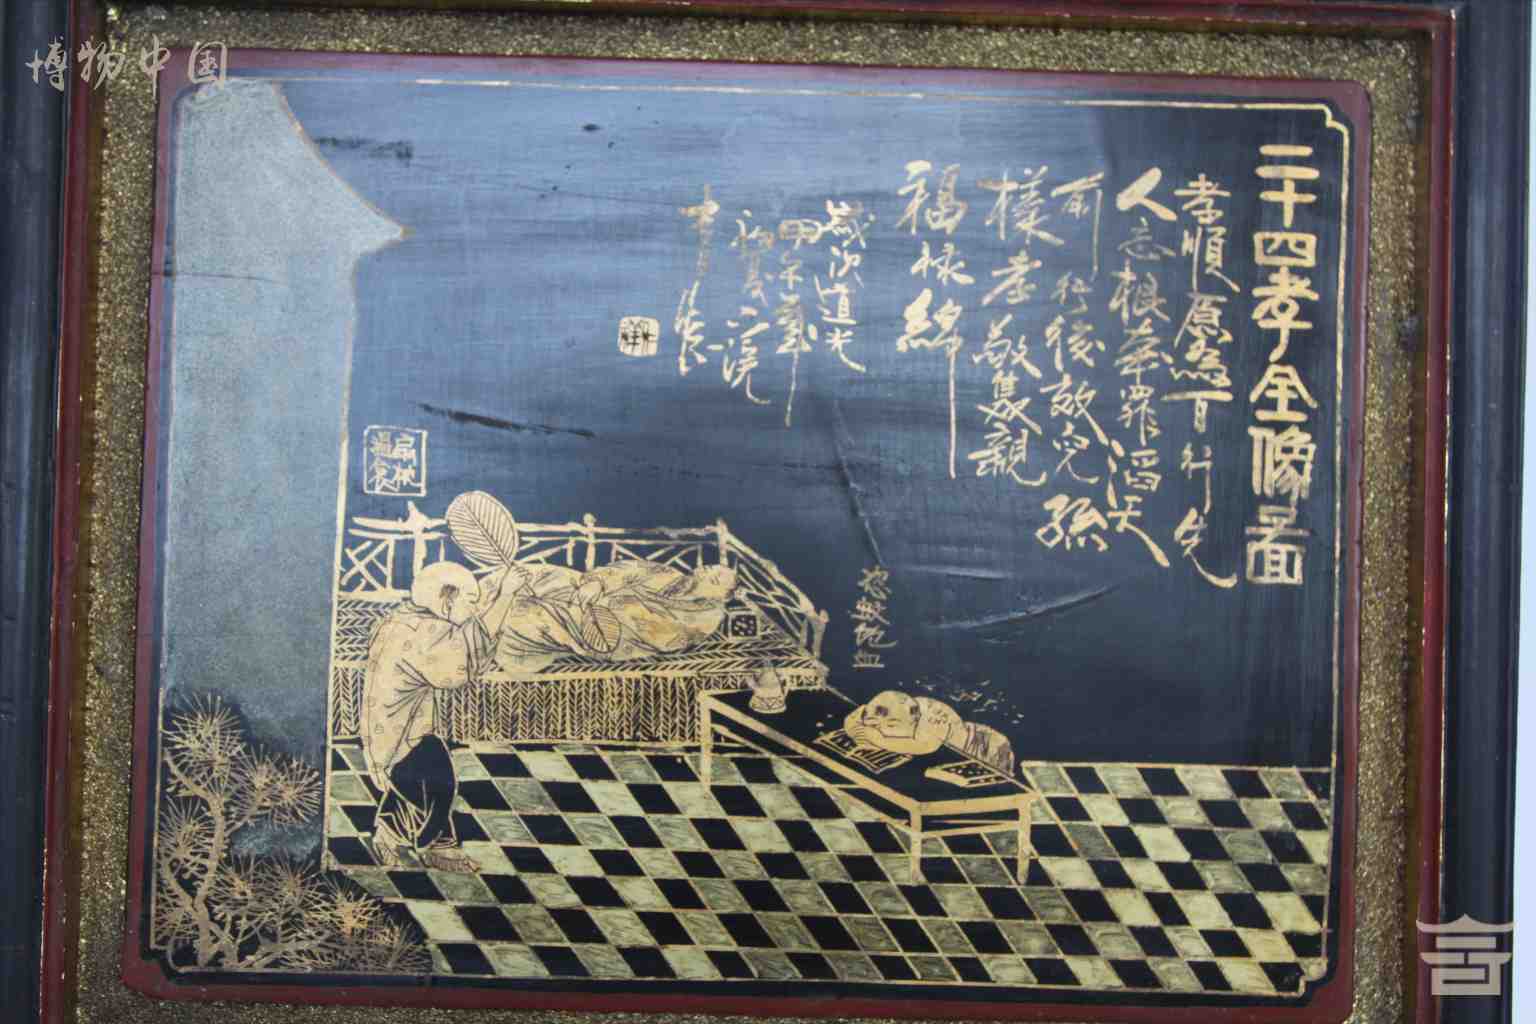 博物中国
二十四孝全像畐
孝順原為百行先
人忘根本罪滔天
前行後效兒孫
樣孝敬双親
福祿綿
歲次道光
甲午年
初夏
扇枕
溫衾
恣蚊飽血